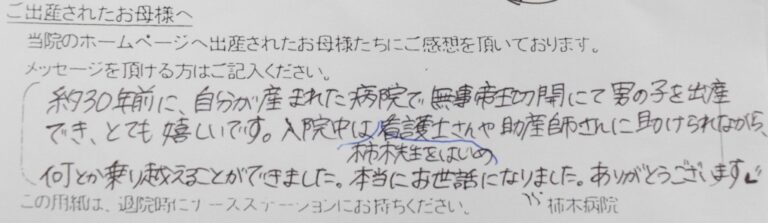 ご出産されたお母様へ
当院のホームページへ出産されたお母様たちにご感想を頂いております。
メッセージを頂ける方はご記入ください。
約30年前に、自分が産まれた病院で無事帝王切開にて男の子を出産
でき、とても嬉しいです。入院中は看護士さんや助産師さんに助けられながら、
柿木先生をはじめ
何とか乗り越えることができました。本当にお世話になりました。ありがとうございます
この用紙は、退院時にナースステーションにお持ちください。 柿木病院